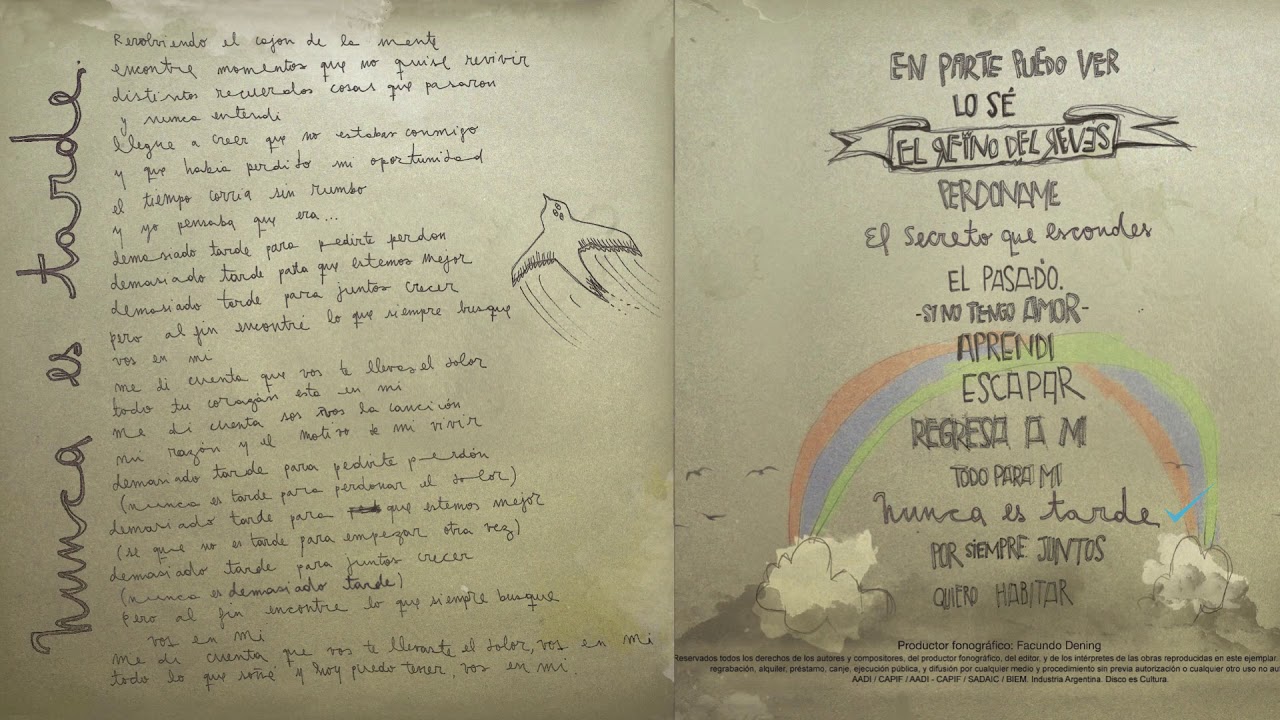 Nunca es tarde.
Revolviendo el cajon de la mente
encontre momentos que no quise revivir
distintos recuerdos cosas que pasaron
y nunca entendi
llegue a creer que no estabas conmigo
y que habia perdido mi oportunidad
el tiempo corria sin rumbo
y yo pensaba que era...
demasiado tarde para pedirte perdon
demasiado tarde para que estemos mejor
demasiado tarde para juntos crecer
pero al fin encontré lo que siempre busque
vos en mi
me di cuenta que vos te llevas el dolor
todo tu corazón esta en mi
me di cuenta sos vos la canción
mi razón y el motivo de mi vivir
demasiado tarde para pedirte perdón
(nunca es tarde para perdonar el dolor)
demasiado tarde para que estemos mejor
(se que no es tarde para empezar otra vez)
demasiado tarde para juntos crecer
(nunca es demasiado tarde)
pero al fin encontre lo que siempre busque
vos en mi
me di cuenta que vos te llevaste el dolor, vos en mi
todo lo que soñé y hoy puedo tener, vos en mi
EN PARTE PUEDO VER
LO SÉ
EL REINO DEL REVÉS
PERDONAME
El Secreto que escondes
EL PASADO.
-SI NO TENGO AMOR-
APRENDI
ESCAPAR
REGRESA A MI
TODO PARA MI
Nunca es tarde
POR SIEMPRE JUNTOS
QUIERO HABITAR
Productor fonográfico: Facundo Dening
Reservados todos los derechos de los autores y compositores, del productor fonográfico, del editor, y de los intérpretes de las obras reproducidas en este ejemplar.
regrabación, alquiler, préstamo, canje, ejecución pública, y difusión por cualquier medio y procedimiento sin previa autorización o cualquier otro uso no au
AADI / CAPIF / AADI - CAPIF / SADAIC / BIEM. Industria Argentina. Disco es Cultura.